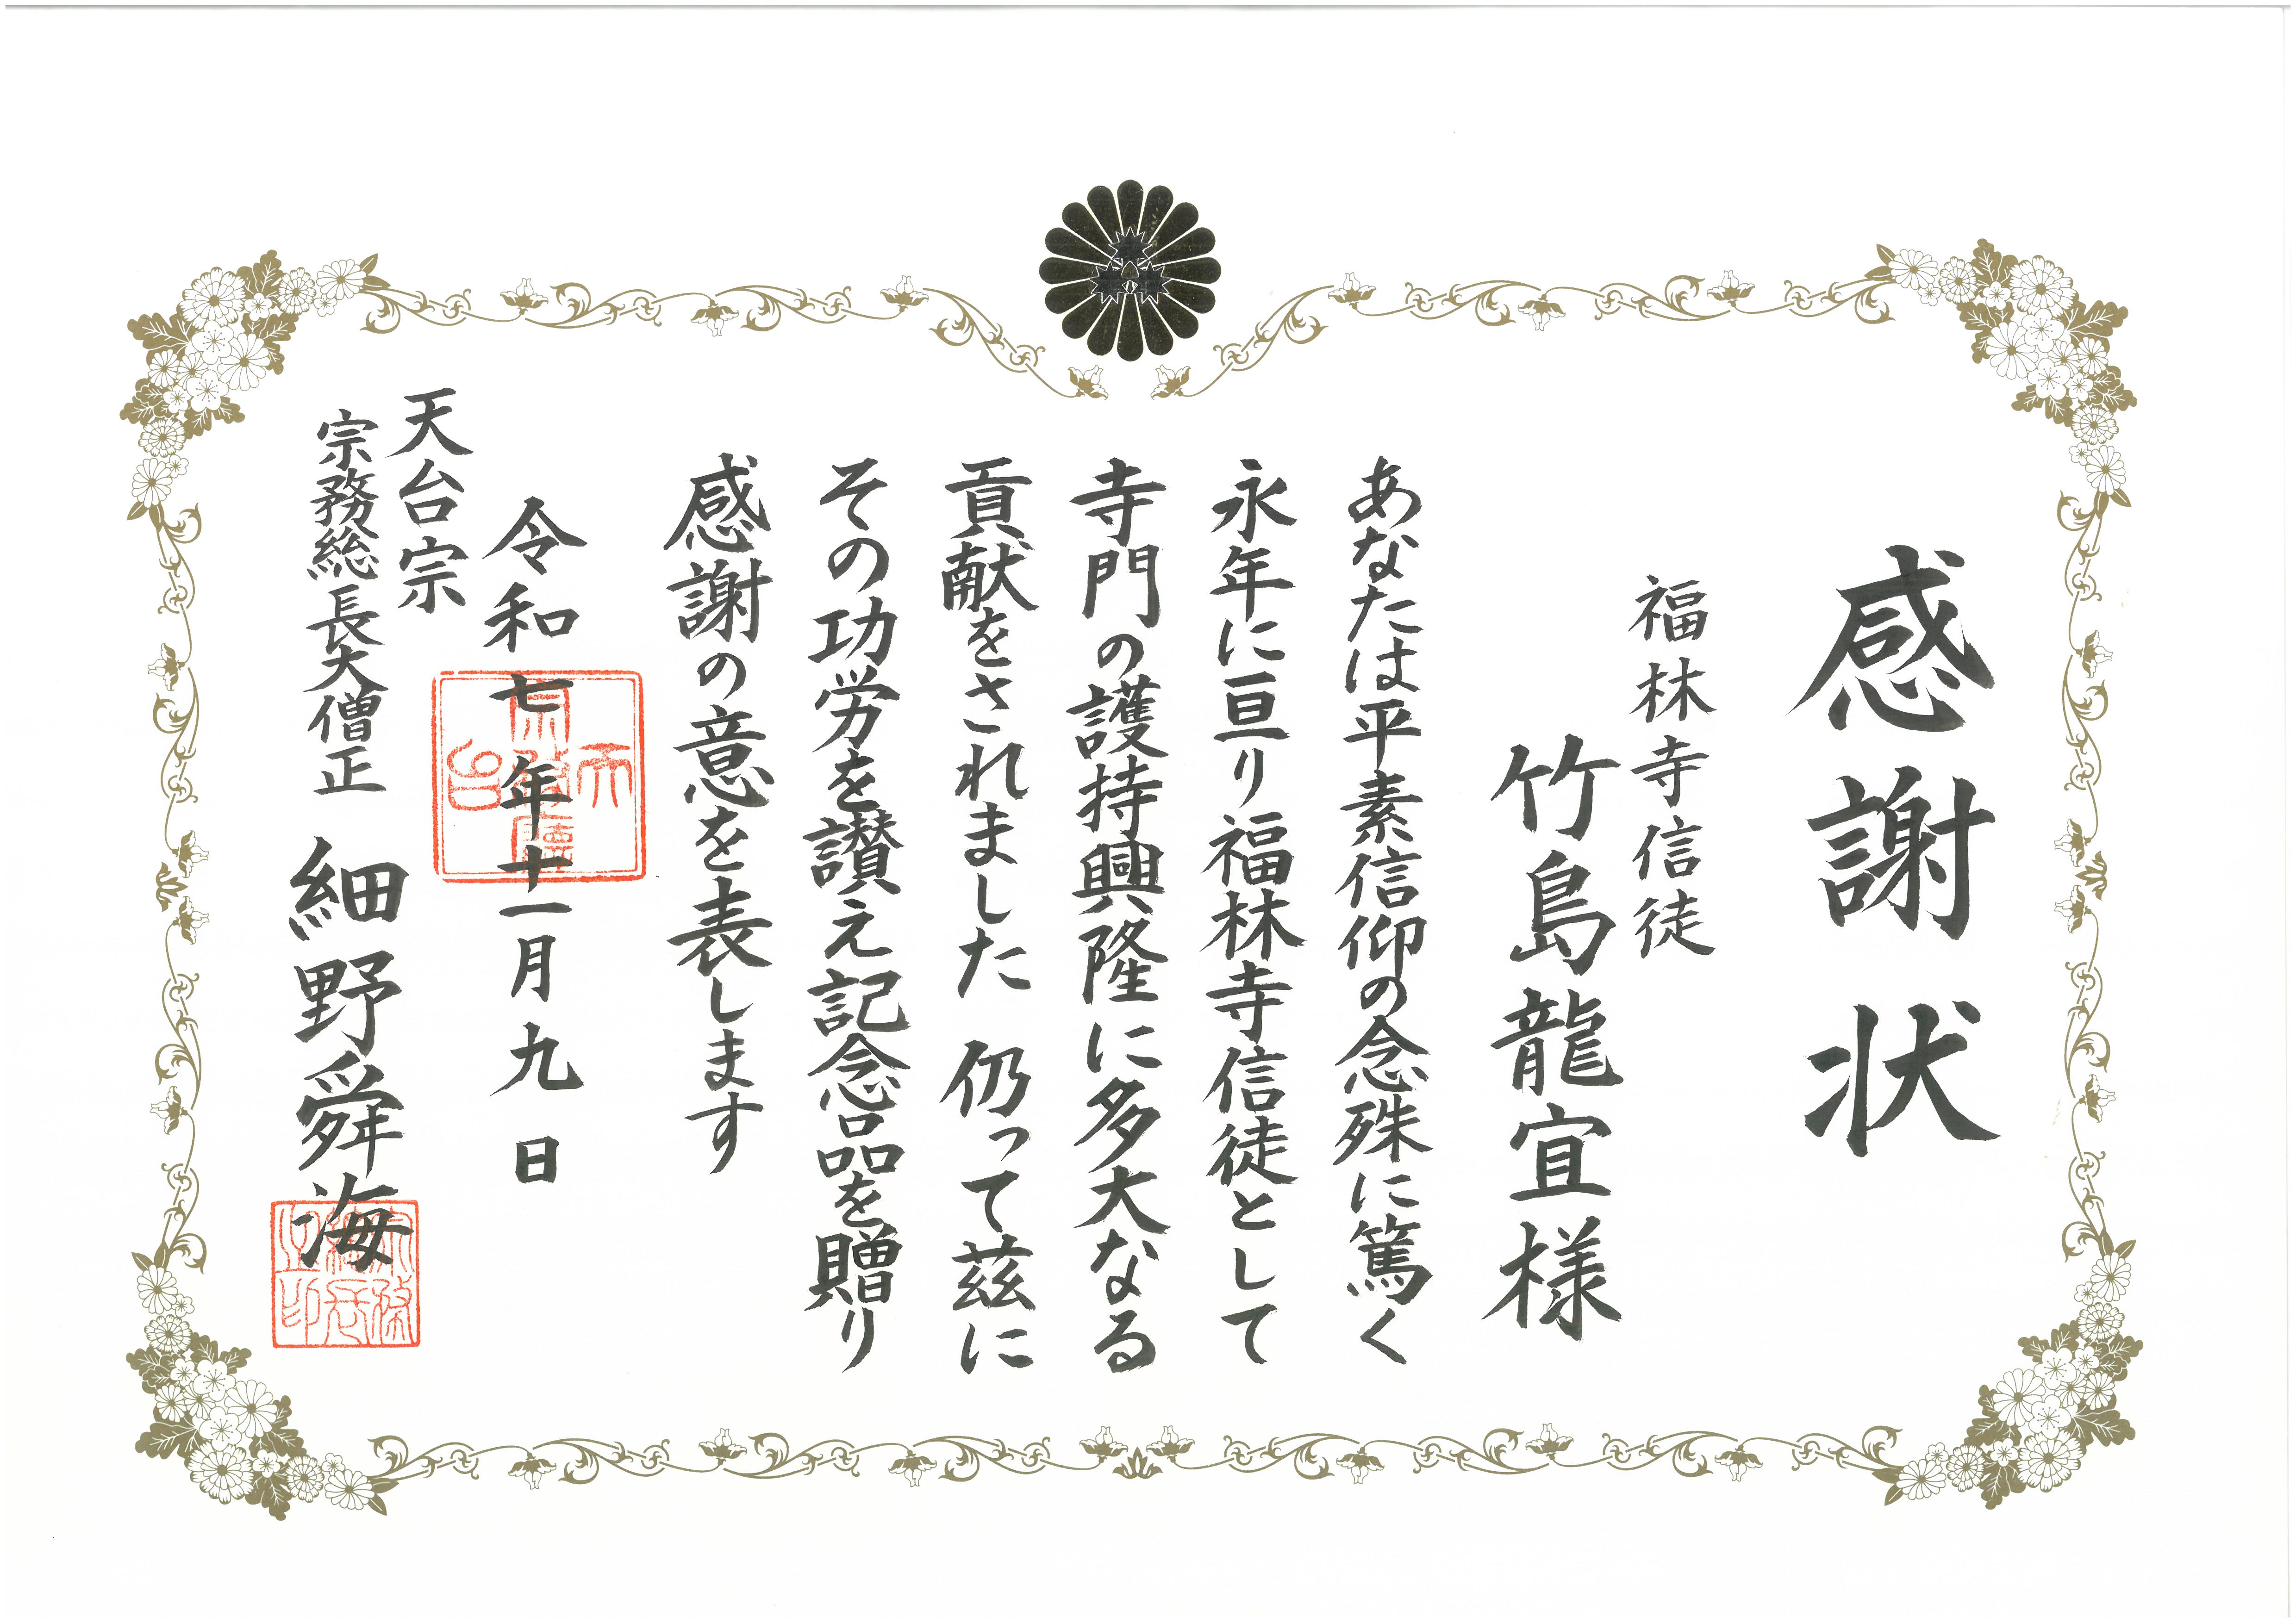 感謝状
福林寺信徒
竹島龍宜様
あなたは平素信仰の念殊に篤く
永年に亘り福林寺信徒として
寺門の護持興隆に多大なる
貢献をされました 仍って茲に
その功労を讃え記念品を贈り
感謝の意を表します
令和七年十一月九日
天台宗
宗務総長大僧正 細野舜海
天台宗務廳
宗務総長之印